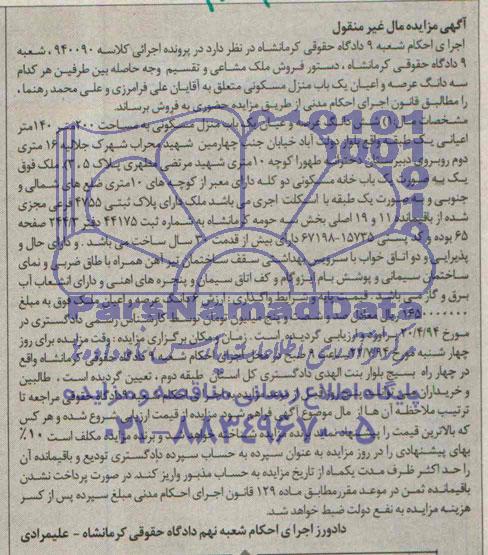 آگهی مزایده مال غیر منقول
اجرای احکام شعبه ۹ دادگاه حقوقی کرمانشاه در نظر دارد در پرونده اجرائی کلاسه ۹۴۰۰۹۰ ، شعبه
۹ دادگاه حقوقی کرمانشاه ، دستور فروش ملک مشاعی و تقسیم وجه حاصله بین طرفین هر کدام
سه دانگ عرصه و اعیان یک باب منزل مسکونی متعلق به آقایان علی فرامرزی و علی محمد رهنما ،
را مطابق قانون اجرای احکام مدنی از طریق مزایده حضوری به فروش برساند.
مشخصات مال: ۱) دانگ عرصه و اعیان یک باب منزل مسکونی به مساحت ۲۰۰ متر ۱۴۰ متر
اعیانی یک طبقه واقع بلوار دولت آباد خیابان جنت چهارمین شهید محراب شهرک جلالیه ۱۶ متری
دوم روبروی دبیرستان طهورا کوچه ۱۰ متری شهید مرتضی مطهری پلاک ۳۰۵، ملک فوق
یک به صورت یک باب خانه مسکونی دو کله دارای معبر از کوچه های ۱۰ متری ضلع های شمالی و
جنوبی و به صورت یک طبقه با اسکلت آجری می باشد ملک دارای پلاک ثبتی ۴۷۵۵ فرعی مجزی
شده از باقیمانده ۱۱ و ۱۹ اصلی بخش سه حومه کرمانشاه به شماره ثبت ۴۴۱۷۵ دفتر ۲۴۴/۳ صفحه
۶۵ بوده و کد پستی ۱۵۷۳۵-۶۷۱۹۸ دارای بیش از قدمت ۳۰ سال ساخت می باشد . و دارای حال و
پذیرایی و دو اتاق خواب با سرویس بهداشتی سقف ساختمان تیر آهن همراه با طاق ضربی و نمای
ساختمان سیمانی و پوشش بام ایزوگام و کف اتاق سیمان و پنجره های اهنی و دارای انشعاب آب
برق و گاز می باشد. قیمت پایه و شرایط واگذاری: ارزش ۶ دانگ عرصه و اعیان ملک فوق به مبلغ
ریال معادل میلیون تومان توسط کارشناس رسمی دادگستری در
مورخ ۲۰/۴/۹۴ برآورد و ارزیابی گردیده است. زمان و مکان برگزاری مزایده : وقت مزایده برای روز
چهار شنبه مورخ ساعت صبح در محل اجرای احکام شعبه ۹ دادگاه حقوقی کرمانشاه واقع
در چهار راه بسیج بلوار بنت الهدی دادگستری کل استان طبقه دوم ، تعیین گردیده است . طالبین
و خریداران می توانند روز قبل از مزایده به دفتر اجرای احکام شعبه ۹ دادگاه حقوقی مراجعه تا
ترتیب ملاحظه آن ها از مال موضوع آگهی فراهم شود. مزایده از قیمت ارزیابی شروع شده و هر کس
که بالاترین قیمت را پیشنهاد نماید برنده مزایده شناخته خواهد شد. و برنده مزایده مکلف است ۱۰٪
بهای پیشنهادی را در روز مزایده به عنوان سپرده به حساب سپرده دادگستری تودیع و باقیمانده آن
را حد اکثر ظرف مدت یکماه از تاریخ مزایده به حساب مذبور واریز کند. در صورت پرداخت نشدن
باقیمانده ثمن در موعد مقرر مطابق ماده ۱۲۹ قانون اجرای احکام مدنی مبلغ سپرده پس از کسر
هزینه مزایده به نفع دولت ضبط خواهد شد.
دادورز اجرای احکام شعبه نهم دادگاه حقوقی کرمانشاه - علیمرادی
ParsNamadData
پایگاه اطلاع رسانی مناقصه و مزایده
۰۲۱-۸۸۳۴۹۶۷۰-۵